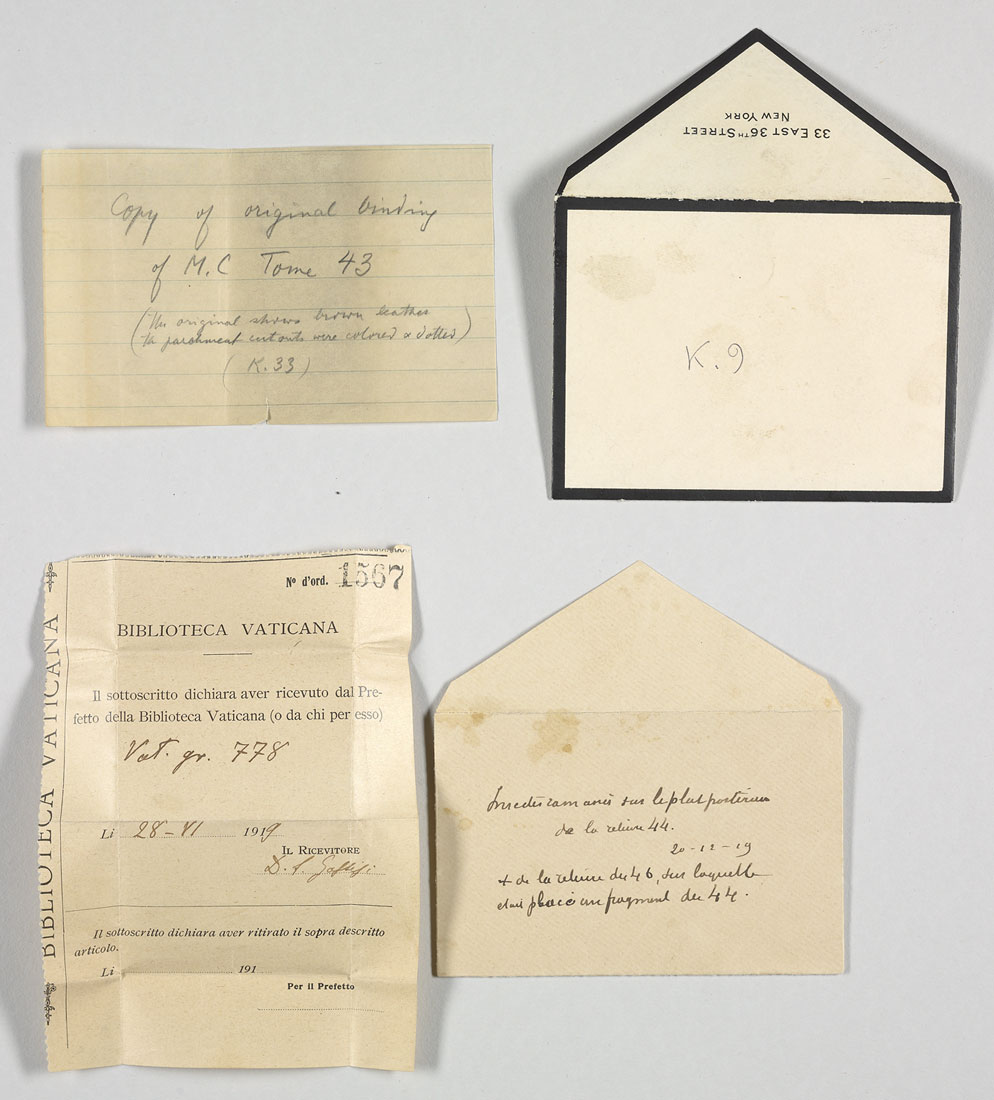 Copy of original binding
of M.C Tome 43
(The original shows brown leather
the parchment cutouts were colored & dotted)
(K.33)
33 EAST 36TH STREET
NEW YORK
K.9
BIBLIOTECA VATICANA
Nº d'ord. 1567
BIBLIOTECA VATICANA
Il sottoscritto dichiara aver ricevuto dal Pre-
fetto della Biblioteca Vaticana (o da chi per esso)
Vat. gr. 778
Li 28-VI 1919
IL RICEVITORE
D. S.
Il sottoscritto dichiara aver ritirato il sopra descritto
articolo.
Li 191
Per il Prefetto
Insectes ramassés sur le plat postérieur
de la reliure 44.
20-12-19
+ de la reliure du 46, sur laquelle
était placé un fragment du 44.